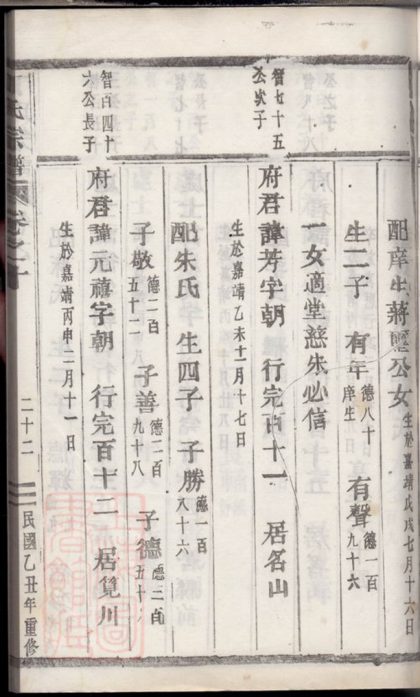 配庠生蔣應公女 生於嘉靖戊戌七月十六日
生二子 有年 德八十 庠生 有聲 德一百 九十六
一女適堂慈朱必信
智七十五 公次子
府君諱芳字朝 行完百十一 居名山
生於嘉靖乙未十二月十七日
配朱氏 生四子 子勝 德一百 八十六
子敬 德二百 五十二 子善 德二百 九十八 子德 德三百 五十
智百四十 六公長子
府君諱元禧字朝 行完百十二 居筧川
生於嘉靖丙申二月十一日
氏宗譜 卷之十 二十二 民國乙丑年重修